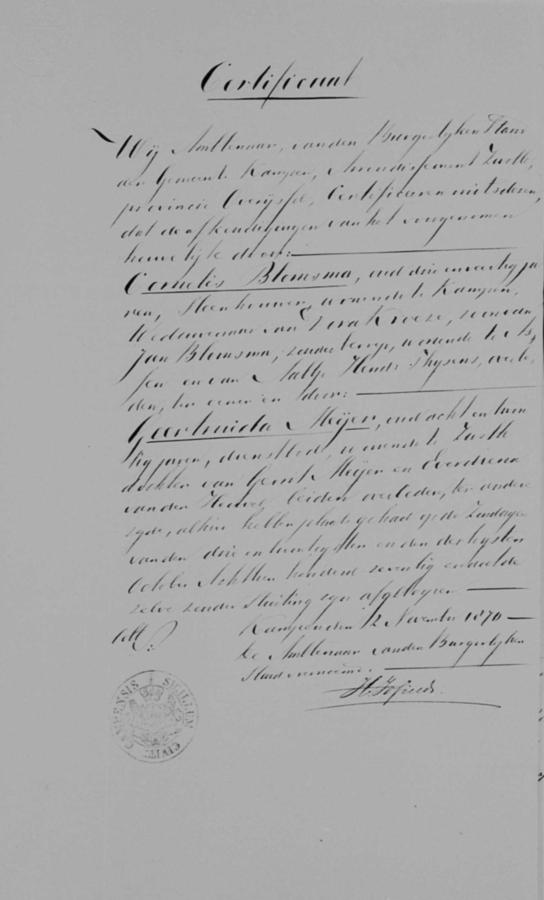 Certificaat
Wij Ambtenaar, van den Burgerlyken Stand
der Gemeente Kampen, Arrondissement Zwolle,
provincie Overyssel, Certificeren mits dezen,
dat de afkondigingen van het voorgenomen
huwelyk door:
Cornelis Blomsma, oud drie en veertig ja
ren, Steenhouwer, wonende te Kampen,
Weduwenaar van Kroeze, zoon van
Jan Blomsma, zonder beroep, wonende te
en van Aaltje Thysens, overle
den, ter eener en door:
Geertruida Meijer, oud acht en twin
tig jaren, dienstbode, wonende te Zwolle
dochter van Gerrit Meijer en Everdina
van den Heuvel, beiden overleden, ter andere
zyde, alhier hebben plaats gehad op de Zondagen
van den drie en twintigsten en den dertigsten
October Achttien honderd zeventig en dat de
zelve zonder Stuiting zyn afgeloopen
Kampen den 2 November 1870
De Ambtenaar van den Burgerlyken
Stand voornoemd.
SIGILLUM CIVIT. CAMPENSIS